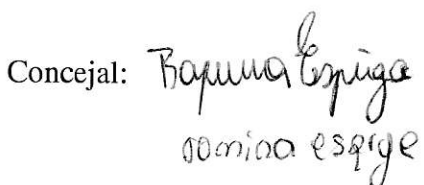 Concejal: Romina Espiga
romina espige